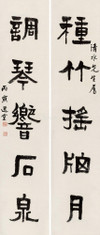 清水先生屬
種竹搖牕月
調琴響石泉
丙寅